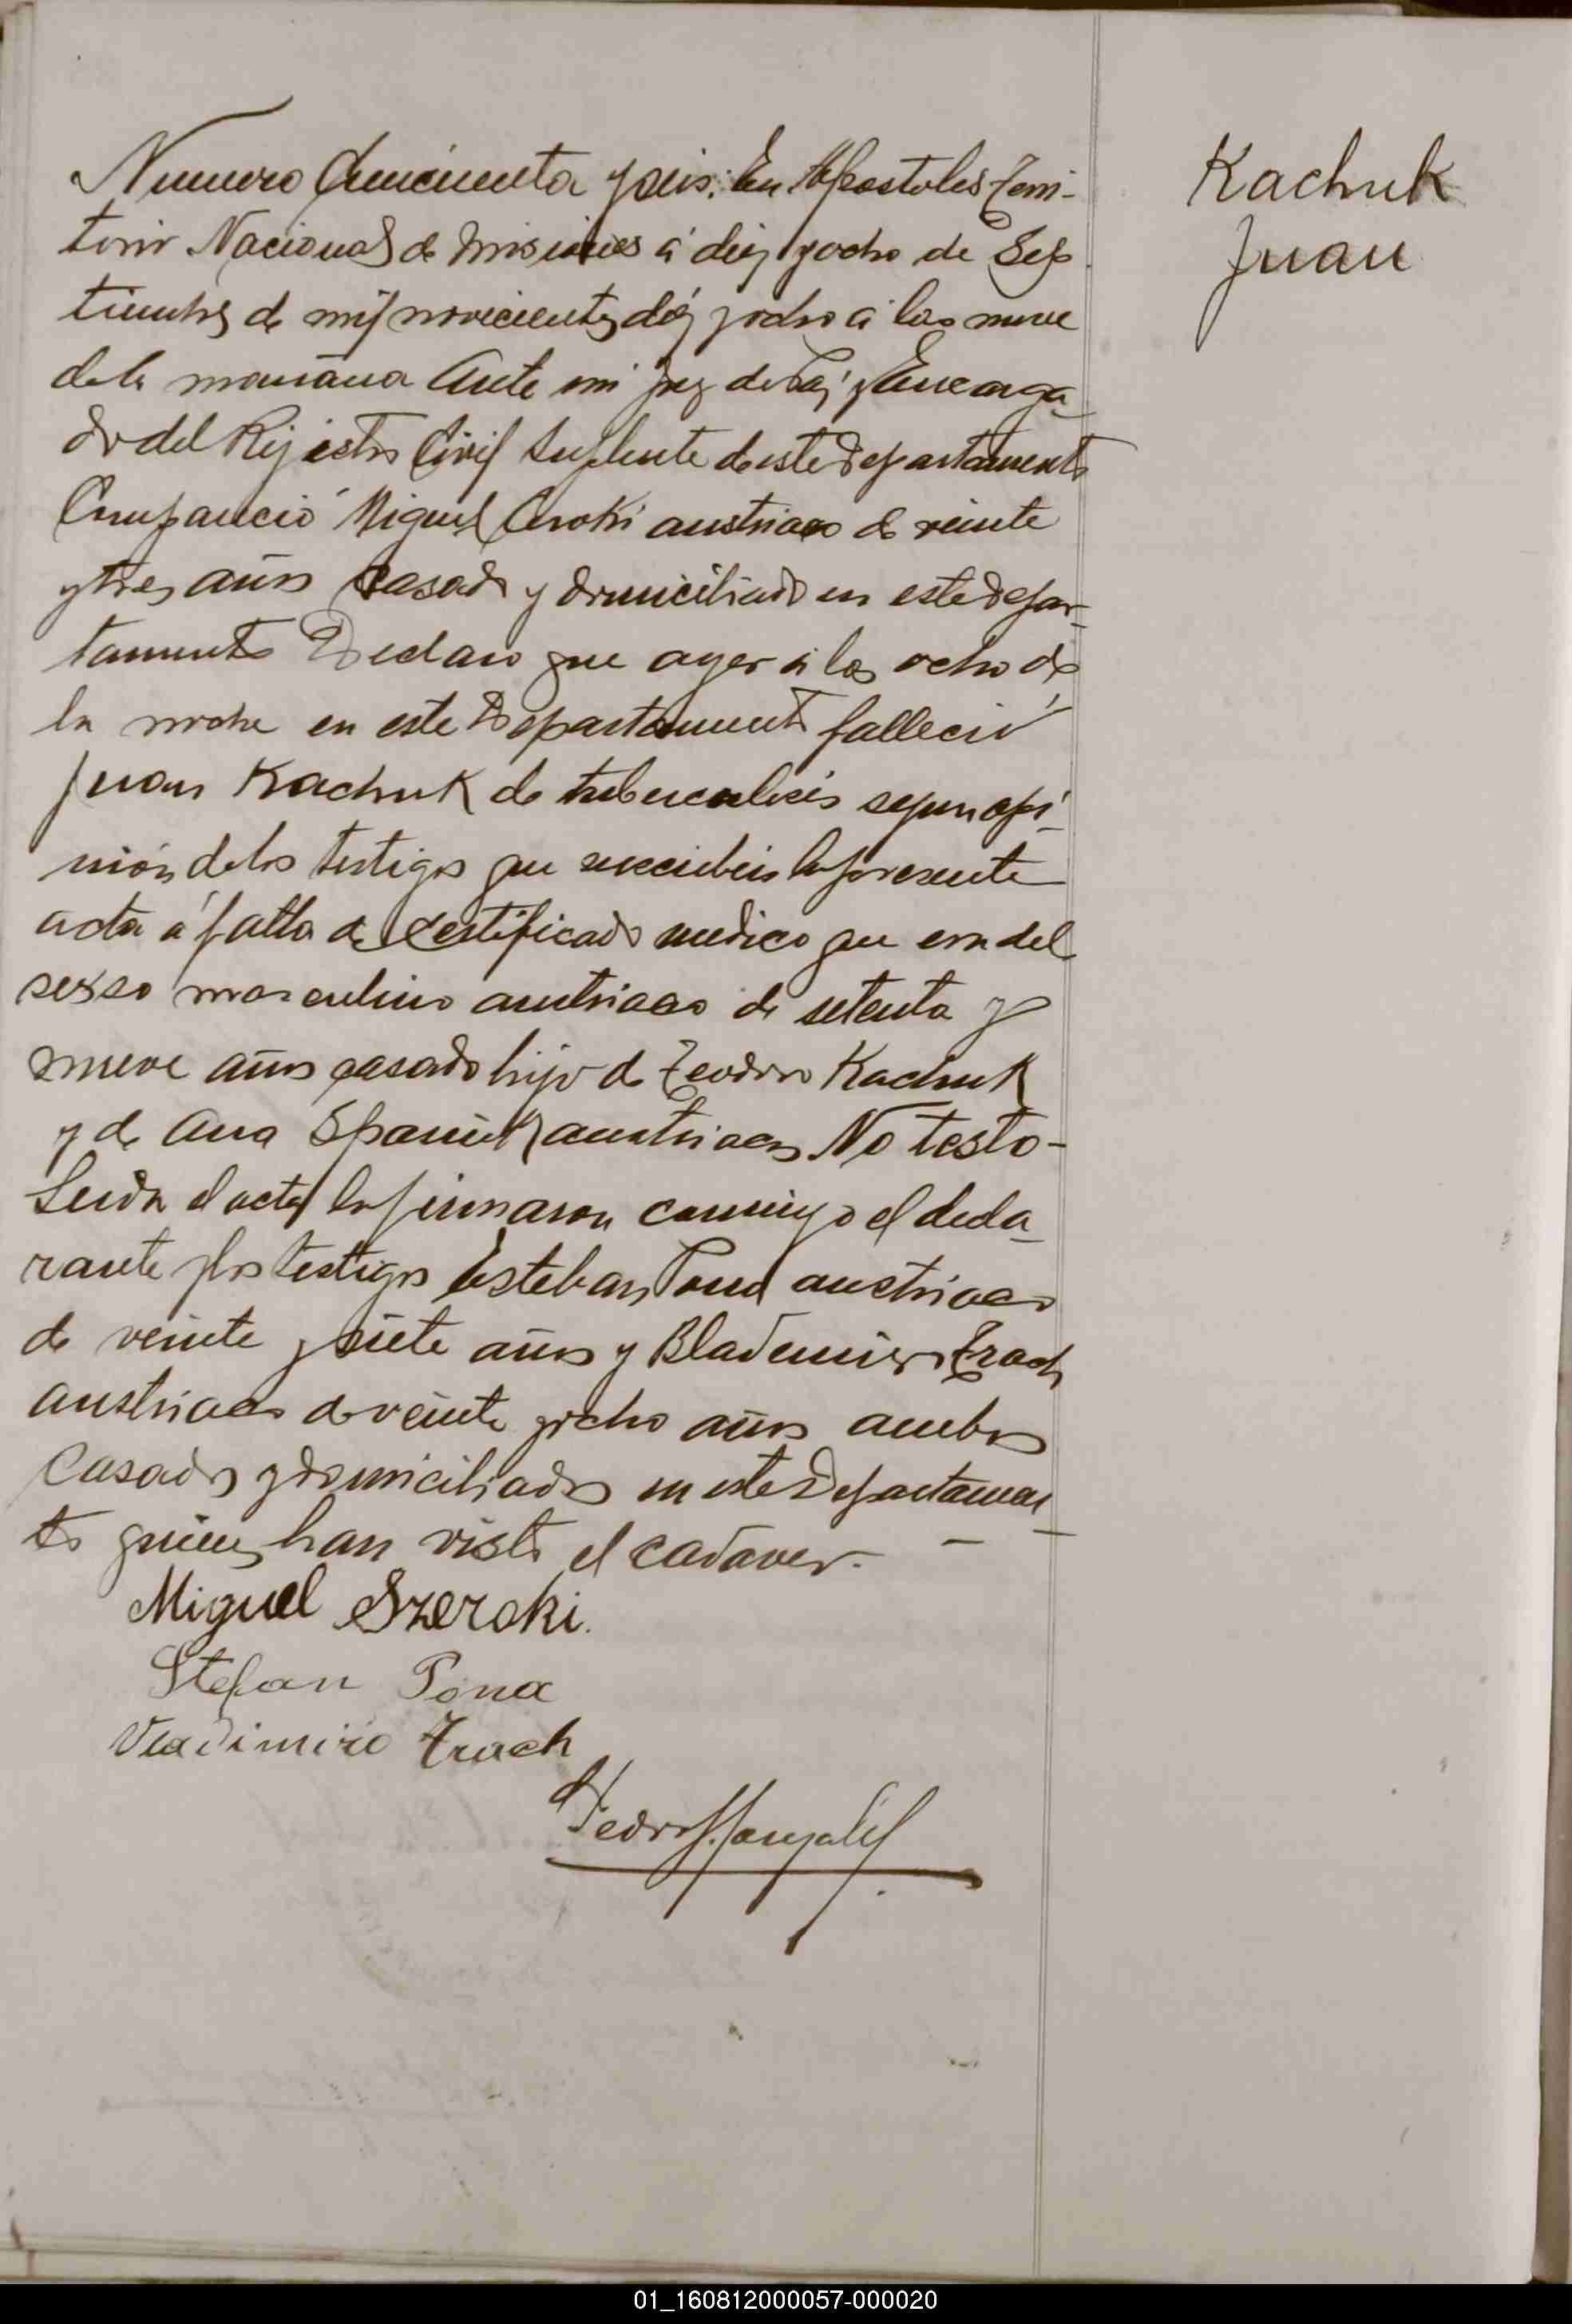 Numero Cincuenta y seis. En Apostoles Terri-
torio Nacional de Misiones á diez y ocho de Sep
tiembre de mil novecientos diez y ocho á las nueve
de la mañana Ante mi Juez de Paz y Encarga-
do del Rejistro Civil Suplente de este departamento
Compareció Miguel Ceroki austriaco de veinte
y tres años casado y domiciliado en este depar-
tamento Declaro que ayer á las ocho de
la noche en este Departamento falleció
Juan Kachuk de tuberculosis segun opi-
nión de los testigos que suscriben la presente
acta á falta de certificado medico que era del
sexso masculino austriaco de setenta y
nueve años casado hijo de Teodoro Kachuk
y de Ana austriacos No testo-
Leida el acta la firmaron conmigo el decla-
rante y los testigos Esteban Pona austriaco
de veinte y siete años y Blademiro Trach
austriaco de veinte y ocho años ambos
casados y domiciliados en este Departamen-
to quienes han visto el cadaver. -
Miguel Szeroki.
Stefan Pona
Vladimiro Trach
Pedro Gonzalez
Kachuk
Juan
01_160812000057-000020